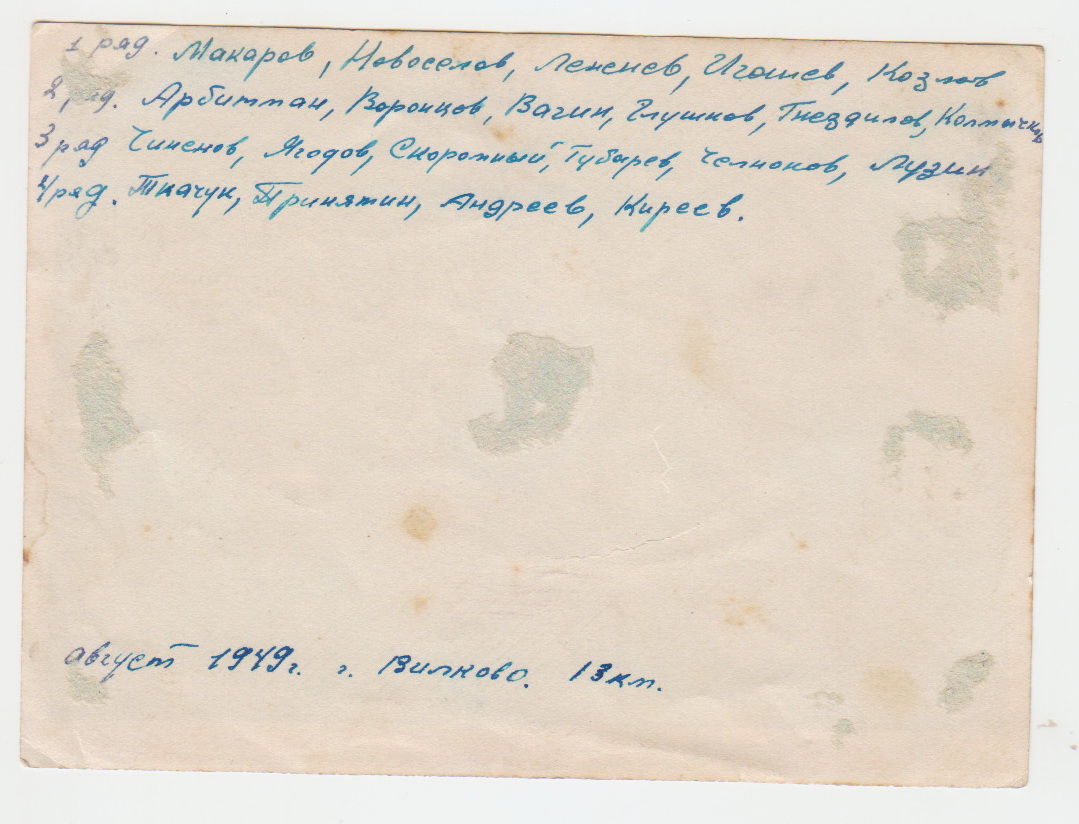 1 ряд. Макаров, Новоселов, Леженев, Игошев, Козлов
2 ряд. Арбитман, Воронцов, Вагин, Глушков, Гнездилов, Колмычков
3 ряд Чиненов, Ягодов, Скоромный, Губарев, Челноков, Лузин
4 ряд. Ткачук, Принятин, Андреев, Киреев.
август 1949г. г. Вилково. 13км.